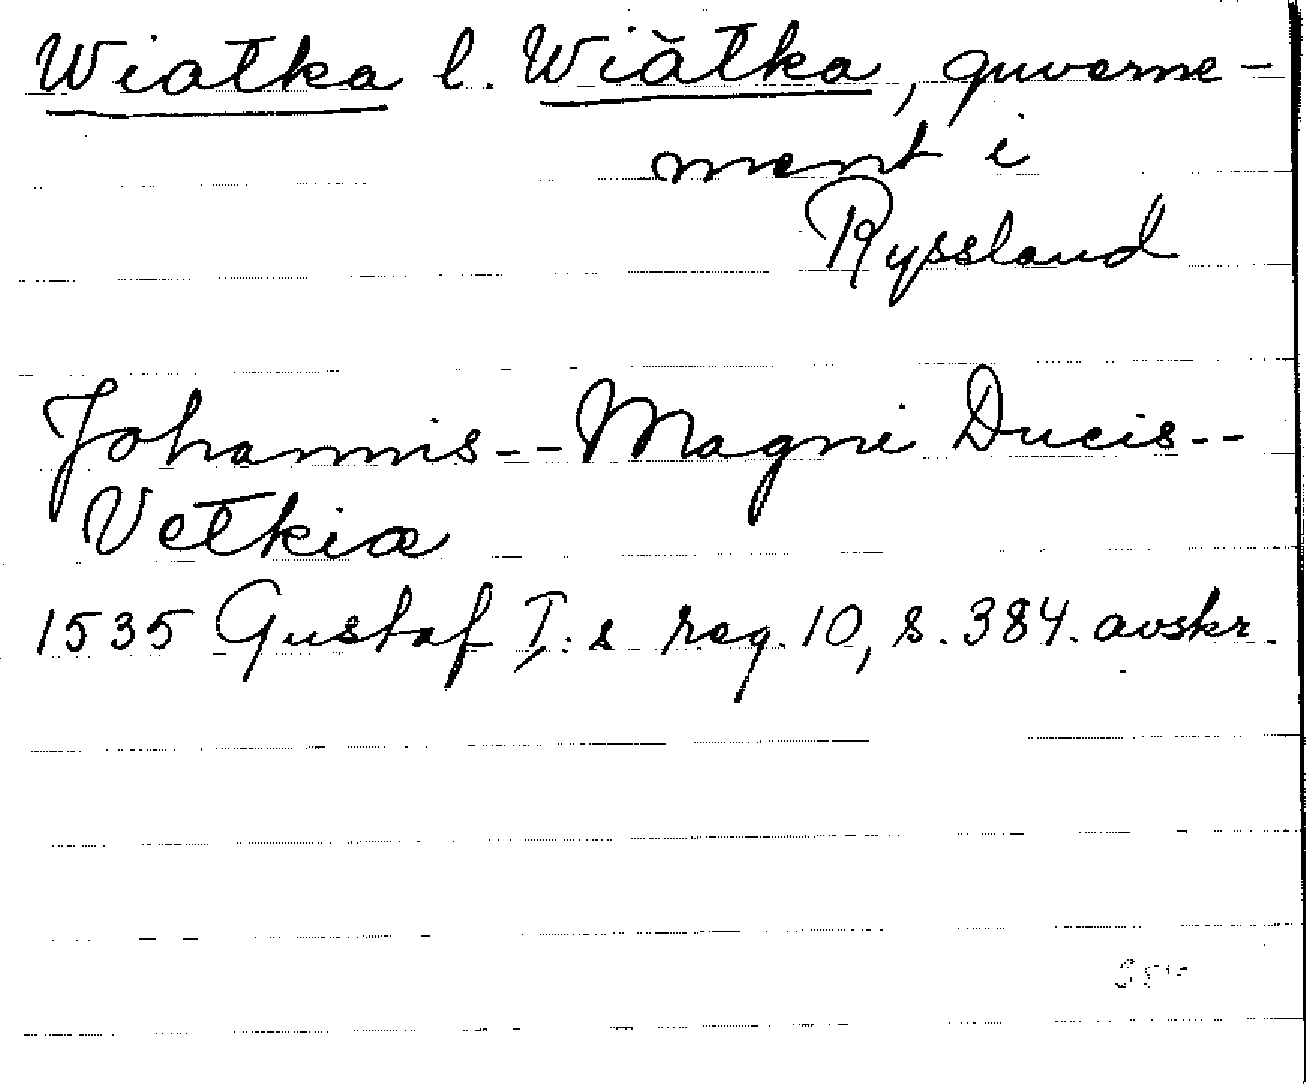 Wiatka l. Wiătka, guverne-
ment i
Ryssland
Johannis--Magni Ducis--
Vetkiæ
1535 Gustaf I:s reg. 10, s. 384. avskr.